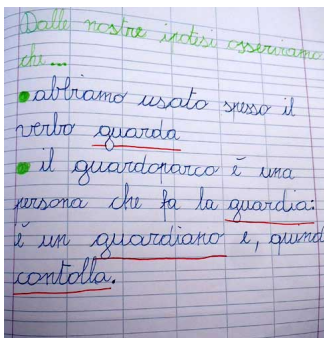 Dalle nostre ipotesi osserviamo
che...
• abbiamo usato spesso il
verbo guarda
• il guardonarco è una
persona che fa la guardia:
è un guardiano e, quind
contolla.